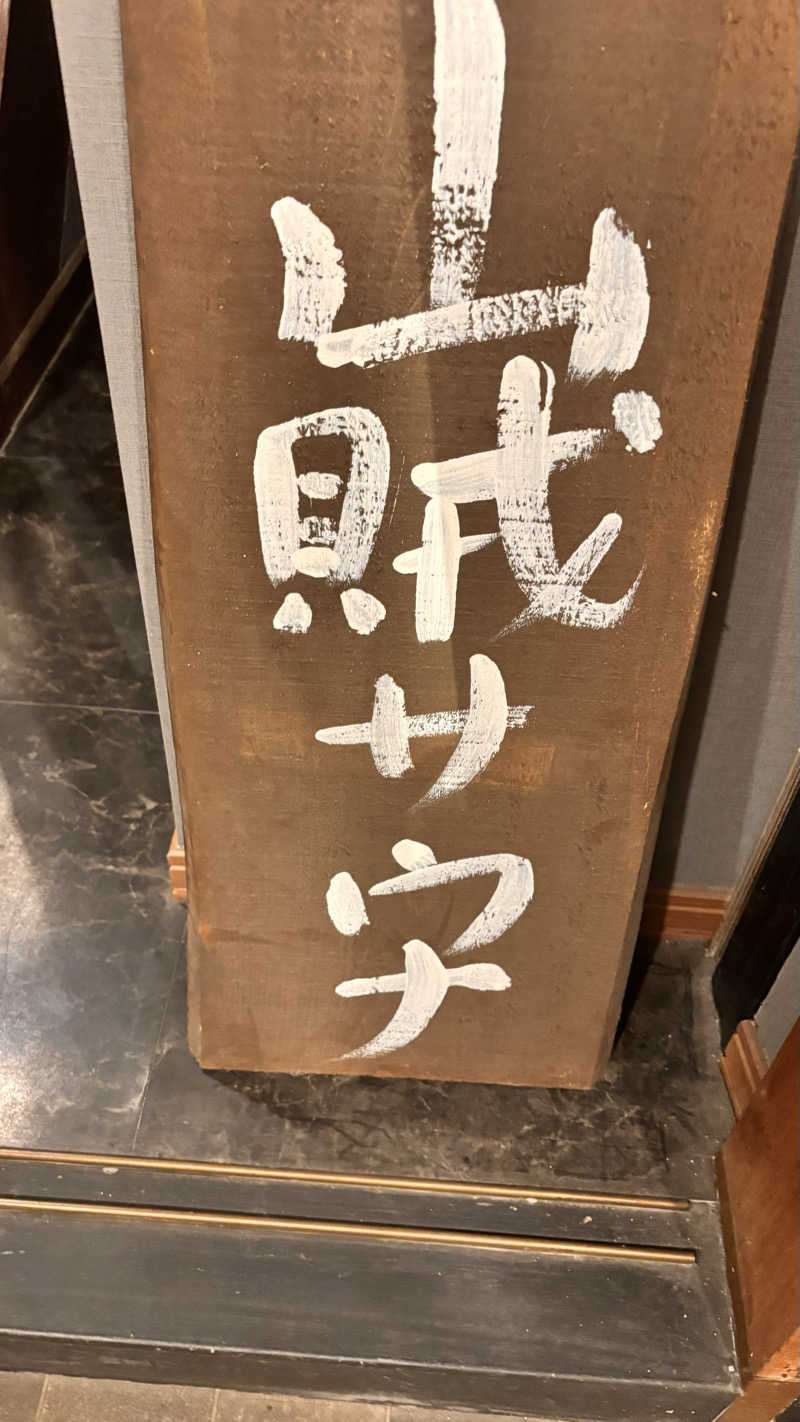 山賊サウナ